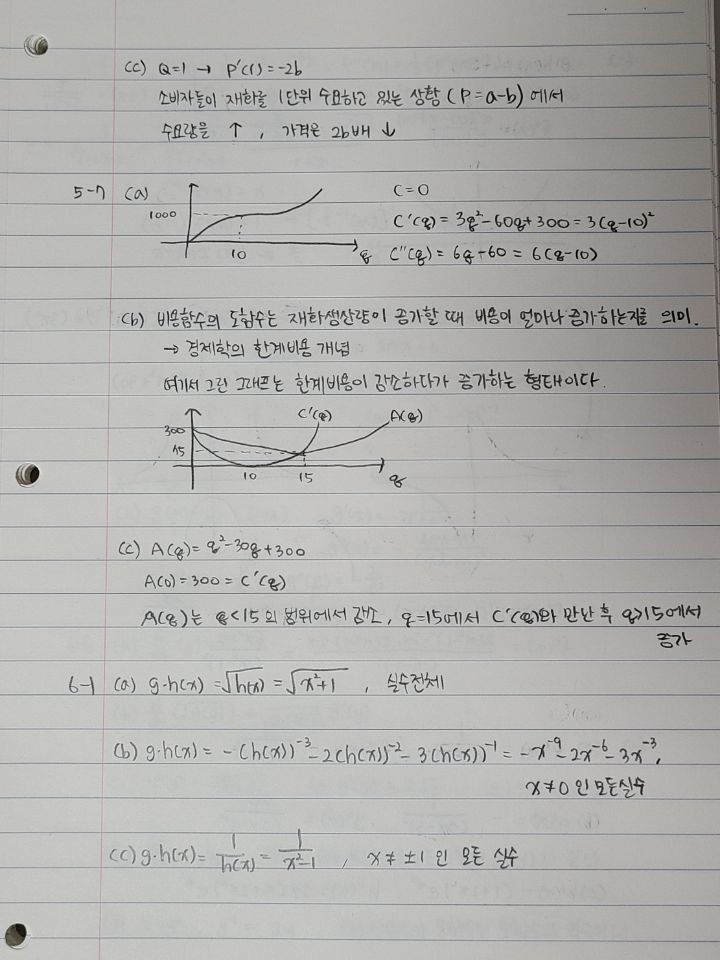 (c) Q=1 → P'(1)=-2b
소비자들이 재화를 1단위 수요하고 있는 상황 (P=a-b) 에서
수요량을 ↑ , 가격은 2b배 ↓
5-7 (a) C=0
1000
C'(q) = 3q²-60q+300 = 3(q-10)²
10 q C''(q) = 6q-60 = 6(q-10)
(b) 비용함수의 도함수는 재화생산량이 증가할 때 비용이 얼마나 증가하는지를 의미.
→ 경제학의 한계비용 개념
여기서 그린 그래프는 한계비용이 감소하다가 증가하는 형태이다.
C'(q) A(q)
300
75
10 15 q
(c) A(q) = q²-30q+300
A(0)=300 = C'(q)
A(q)는 q<15의 범위에서 감소, q=15에서 C'(q)와 만난 후 q>15에서
증가
6-1 (a) g·h(x) = √h(x) = √x²+1 , 실수전체
(b) g·h(x) = -(h(x))⁻³-2(h(x))⁻²-3(h(x))⁻¹ = -x⁻⁹-2x⁻⁶-3x⁻³,
x≠0 인 모든실수
(c) g·h(x) = 1/h(x) = 1/x²-1 , x≠±1 인 모든 실수